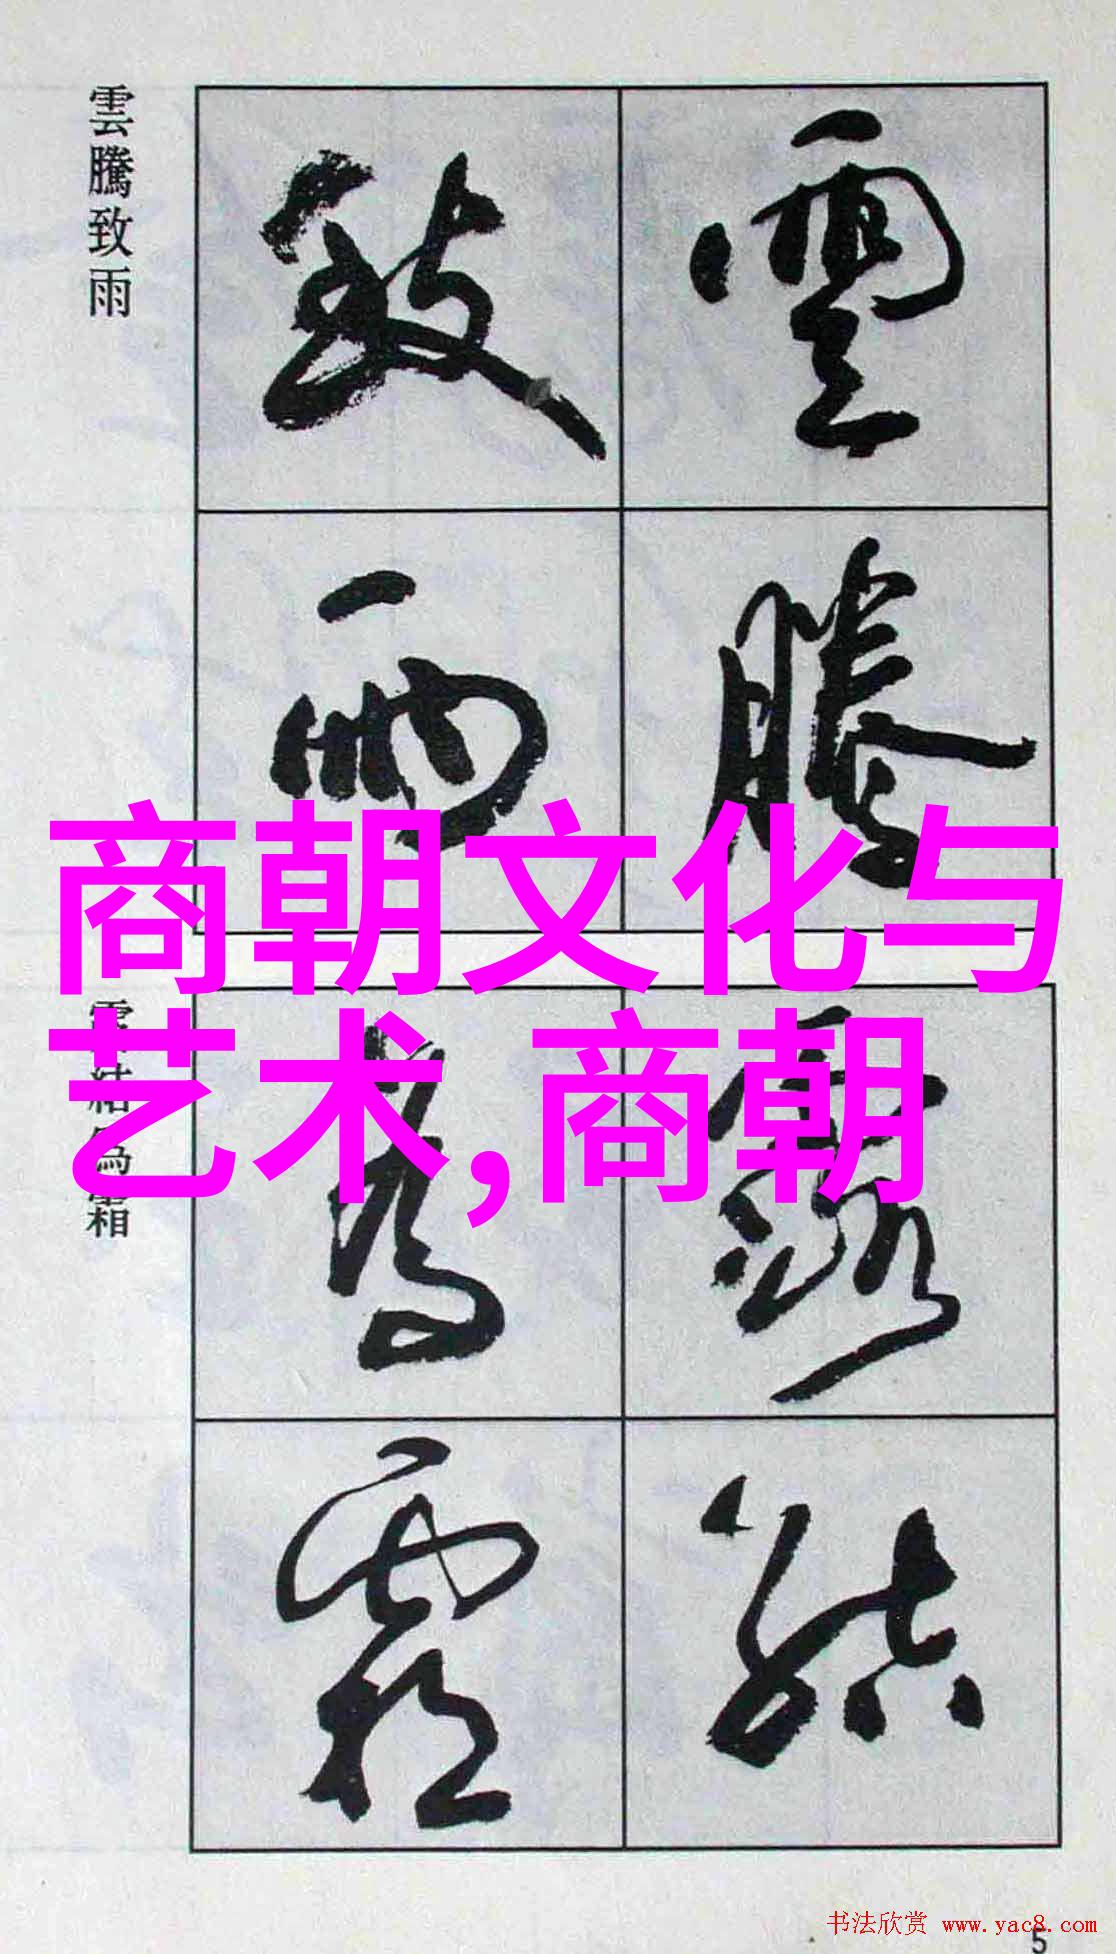 雲騰致雨
雲
騰
致
雨
商朝文化与
艺术,商朝
結為霜
露
結
為
霜
书法欣赏 www.yac8.com
5